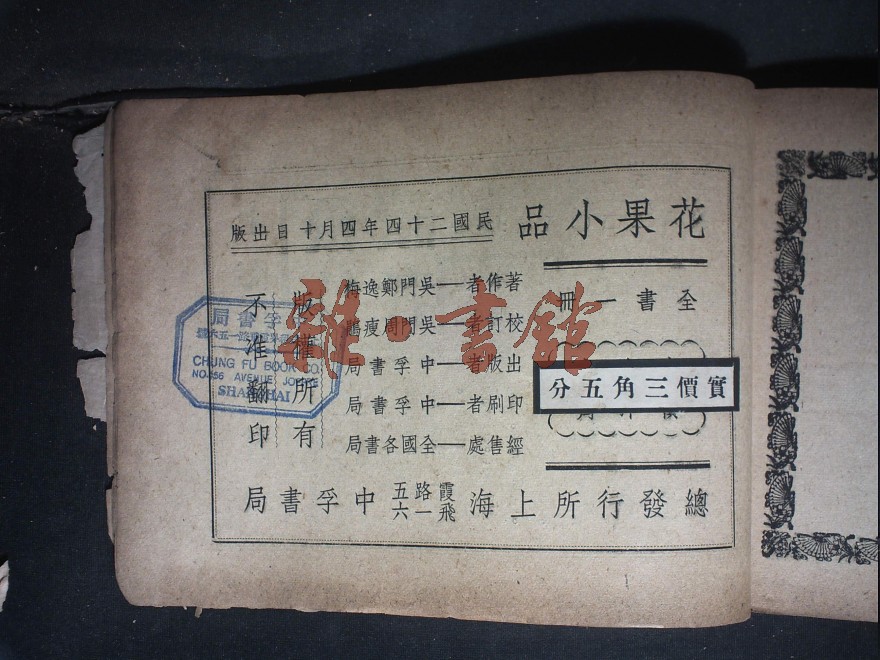 花果小品
民國二十四年四月十日出版
全書一冊
實價三角五分
著作者——吳門鄭逸梅
校訂者——吳門周瘦鵑
出版者——中孚書局
印刷者——中孚書局
經售處——全國各書局
版權所有
不准翻印
總發行所上海霞飛路一五六中孚書局
中孚書局
CHUNG FU BOOK CO.
NO.156 AVENUE JOFFRE
SHANGHAI
雜·書館